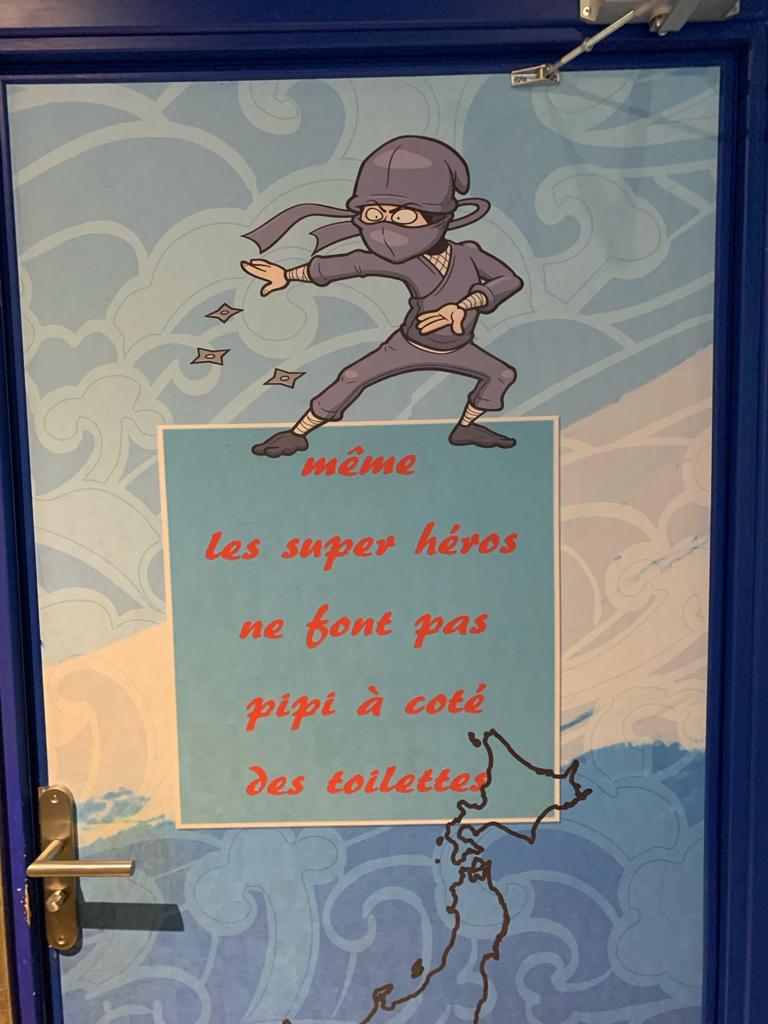 même
les super héros
ne font pas
pipi à coté
des toilettes